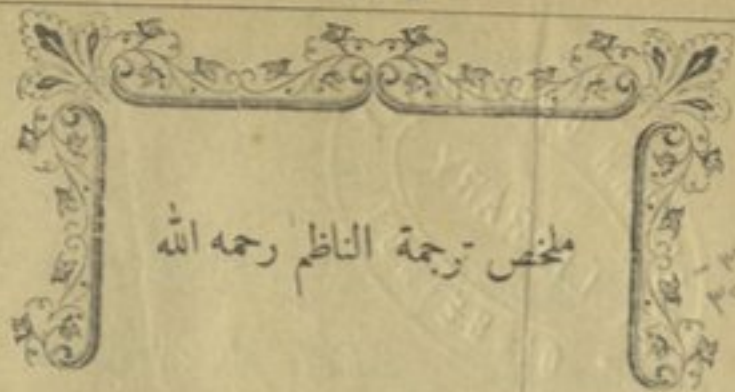 ملخص ترجمة الناظم رحمه الله